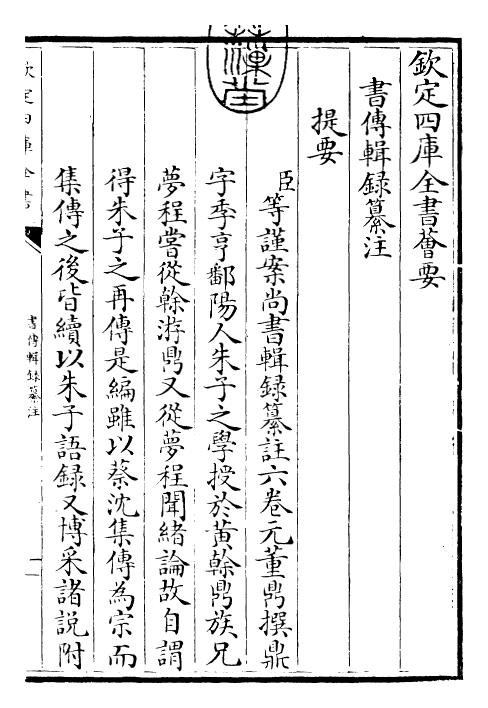 欽定四庫全書薈要
書傳輯録纂注
提要
臣等謹案尚書輯録纂註六卷元董鼎撰鼎
字季亨鄱陽人朱子之學授於黄榦鼎族兄
夢程嘗從榦游鼎又從夢程聞緒論故自謂
得朱子之再傳是編雖以蔡沈集傳為宗而
集傳之後皆續以朱子語録又博采諸説附
欽定四庫全書
書傳輯録纂注
一